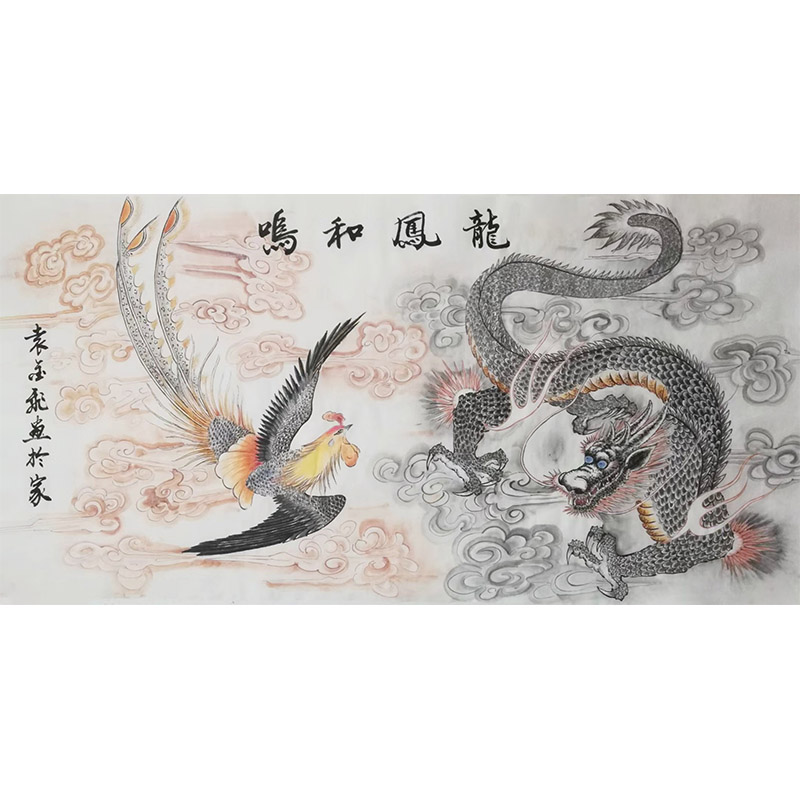 龍鳳和鳴
袁金飛畫於家